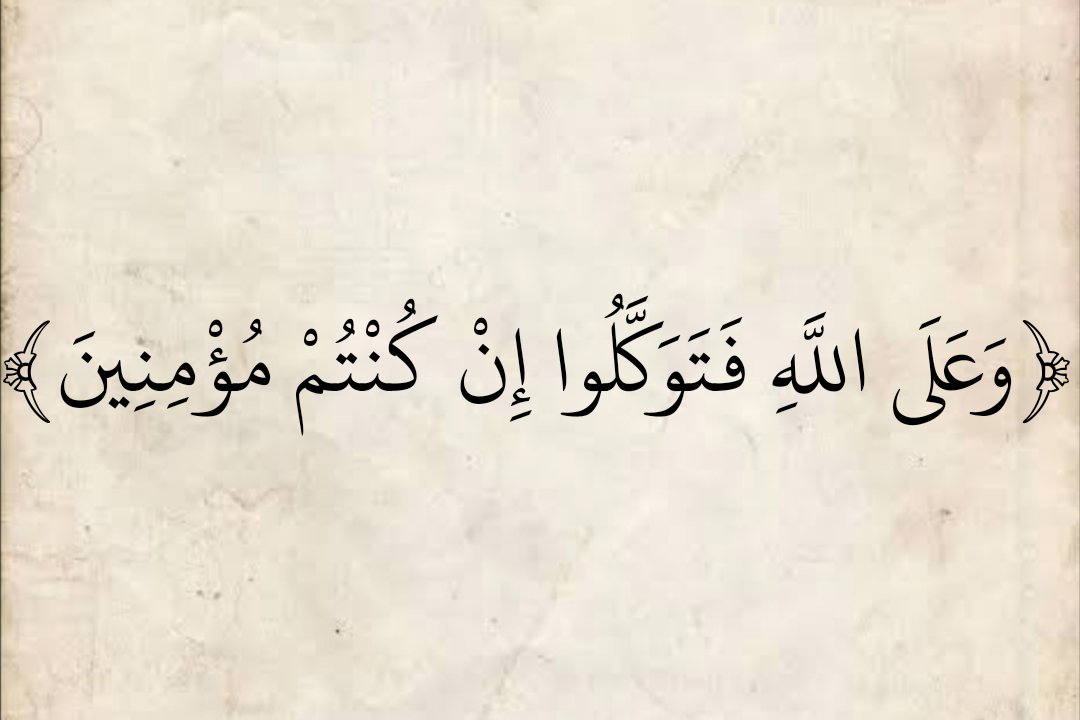 ﴿وَعَلَى اللَّهِ فَتَوَكَّلُوا إِنْ كُنْتُمْ مُؤْمِنِينَ﴾